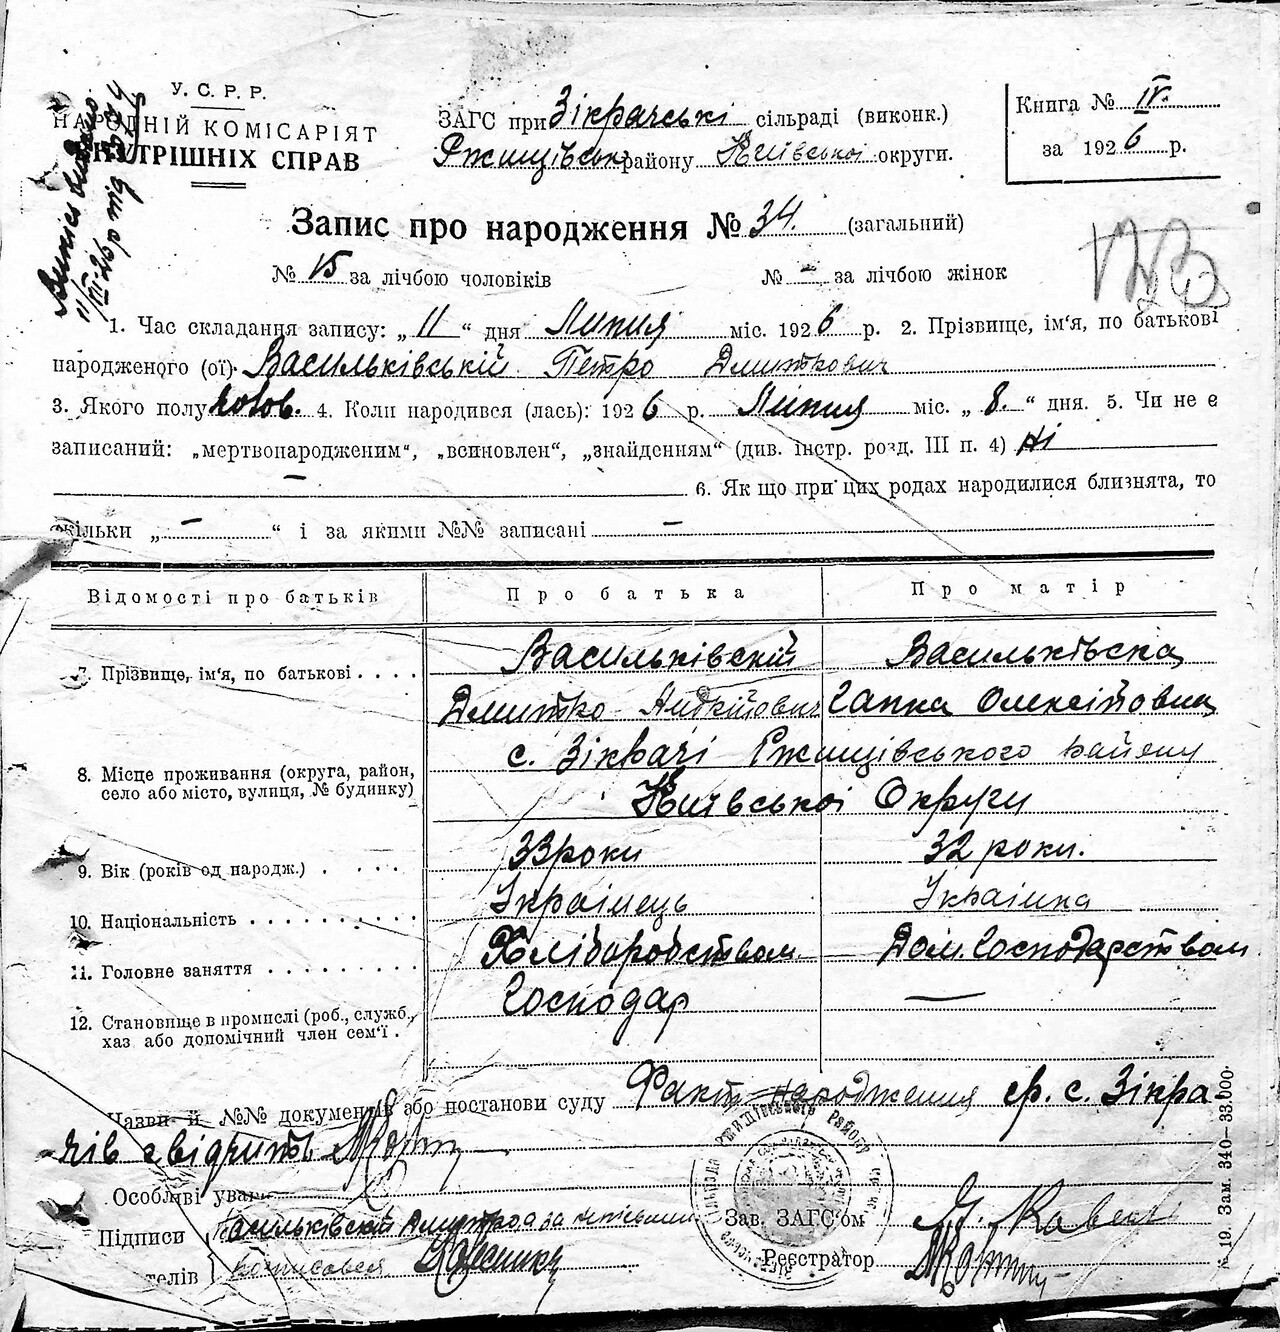 У. С. Р. Р.
НАРОДНІЙ КОМІСАРІЯТ
ВНУТРІШНІХ СПРАВ
ЗАГС при Зікрачські сільраді (виконк.)
Ржищівськ району Київської округи.
Книга № IV.
за 1926 р.
Запис про народження № 34. (загальний)
№ 15 за лічбою чоловіків № - за лічбою жінок
1. Час складання запису: „ 11 “ дня Липия міс. 1926 р. 2. Прізвище, ім'я, по батькові
народженого (ої) Васильківській Петро Дмиткович
3. Якого полу чолов. 4. Коли народився (лась): 1926 р. Липия міс. „ 8. “ дня. 5. Чи не є
записаний: „мертвонародженим“, „всиновлен“, „знайденням“ (див. інстр. розд. III п. 4) Ні
— 6. Як що при цих родах народилися близнята, то
скільки „ — “ і за якими №№ записані —
Відомості про батьків Про батька Про матір
7. Прізвище, ім'я, по батькові . . . . Васильківскій Васильківска
Дмитко Гапка Олексіїовна
8. Місце проживання (округа, район, село або місто, вулиця, № будинку) с. Зікрачі Ржищівського району
Київської Округи
9. Вік (років од народж.) . . . . 33 роки 32 роки.
10. Національність . . . . . . . . . Українець Українка
11. Головне заняття . . . . . . . . Хліборобством. Дом. Господарством
12. Становище в промислі (роб., служб., Господар —
хаз або допомічний член сем'ї .
Назви й №№ документів або постанови суду Факт народження ср. с. Зікра-
чів свідчить
Особливі уваг
Підписи Васильківскій Дмитко а за неписьмин
телів } росписався
Зав. ЗАГС'ом
Реєстратор
№ 19. Зам. 340—33.000